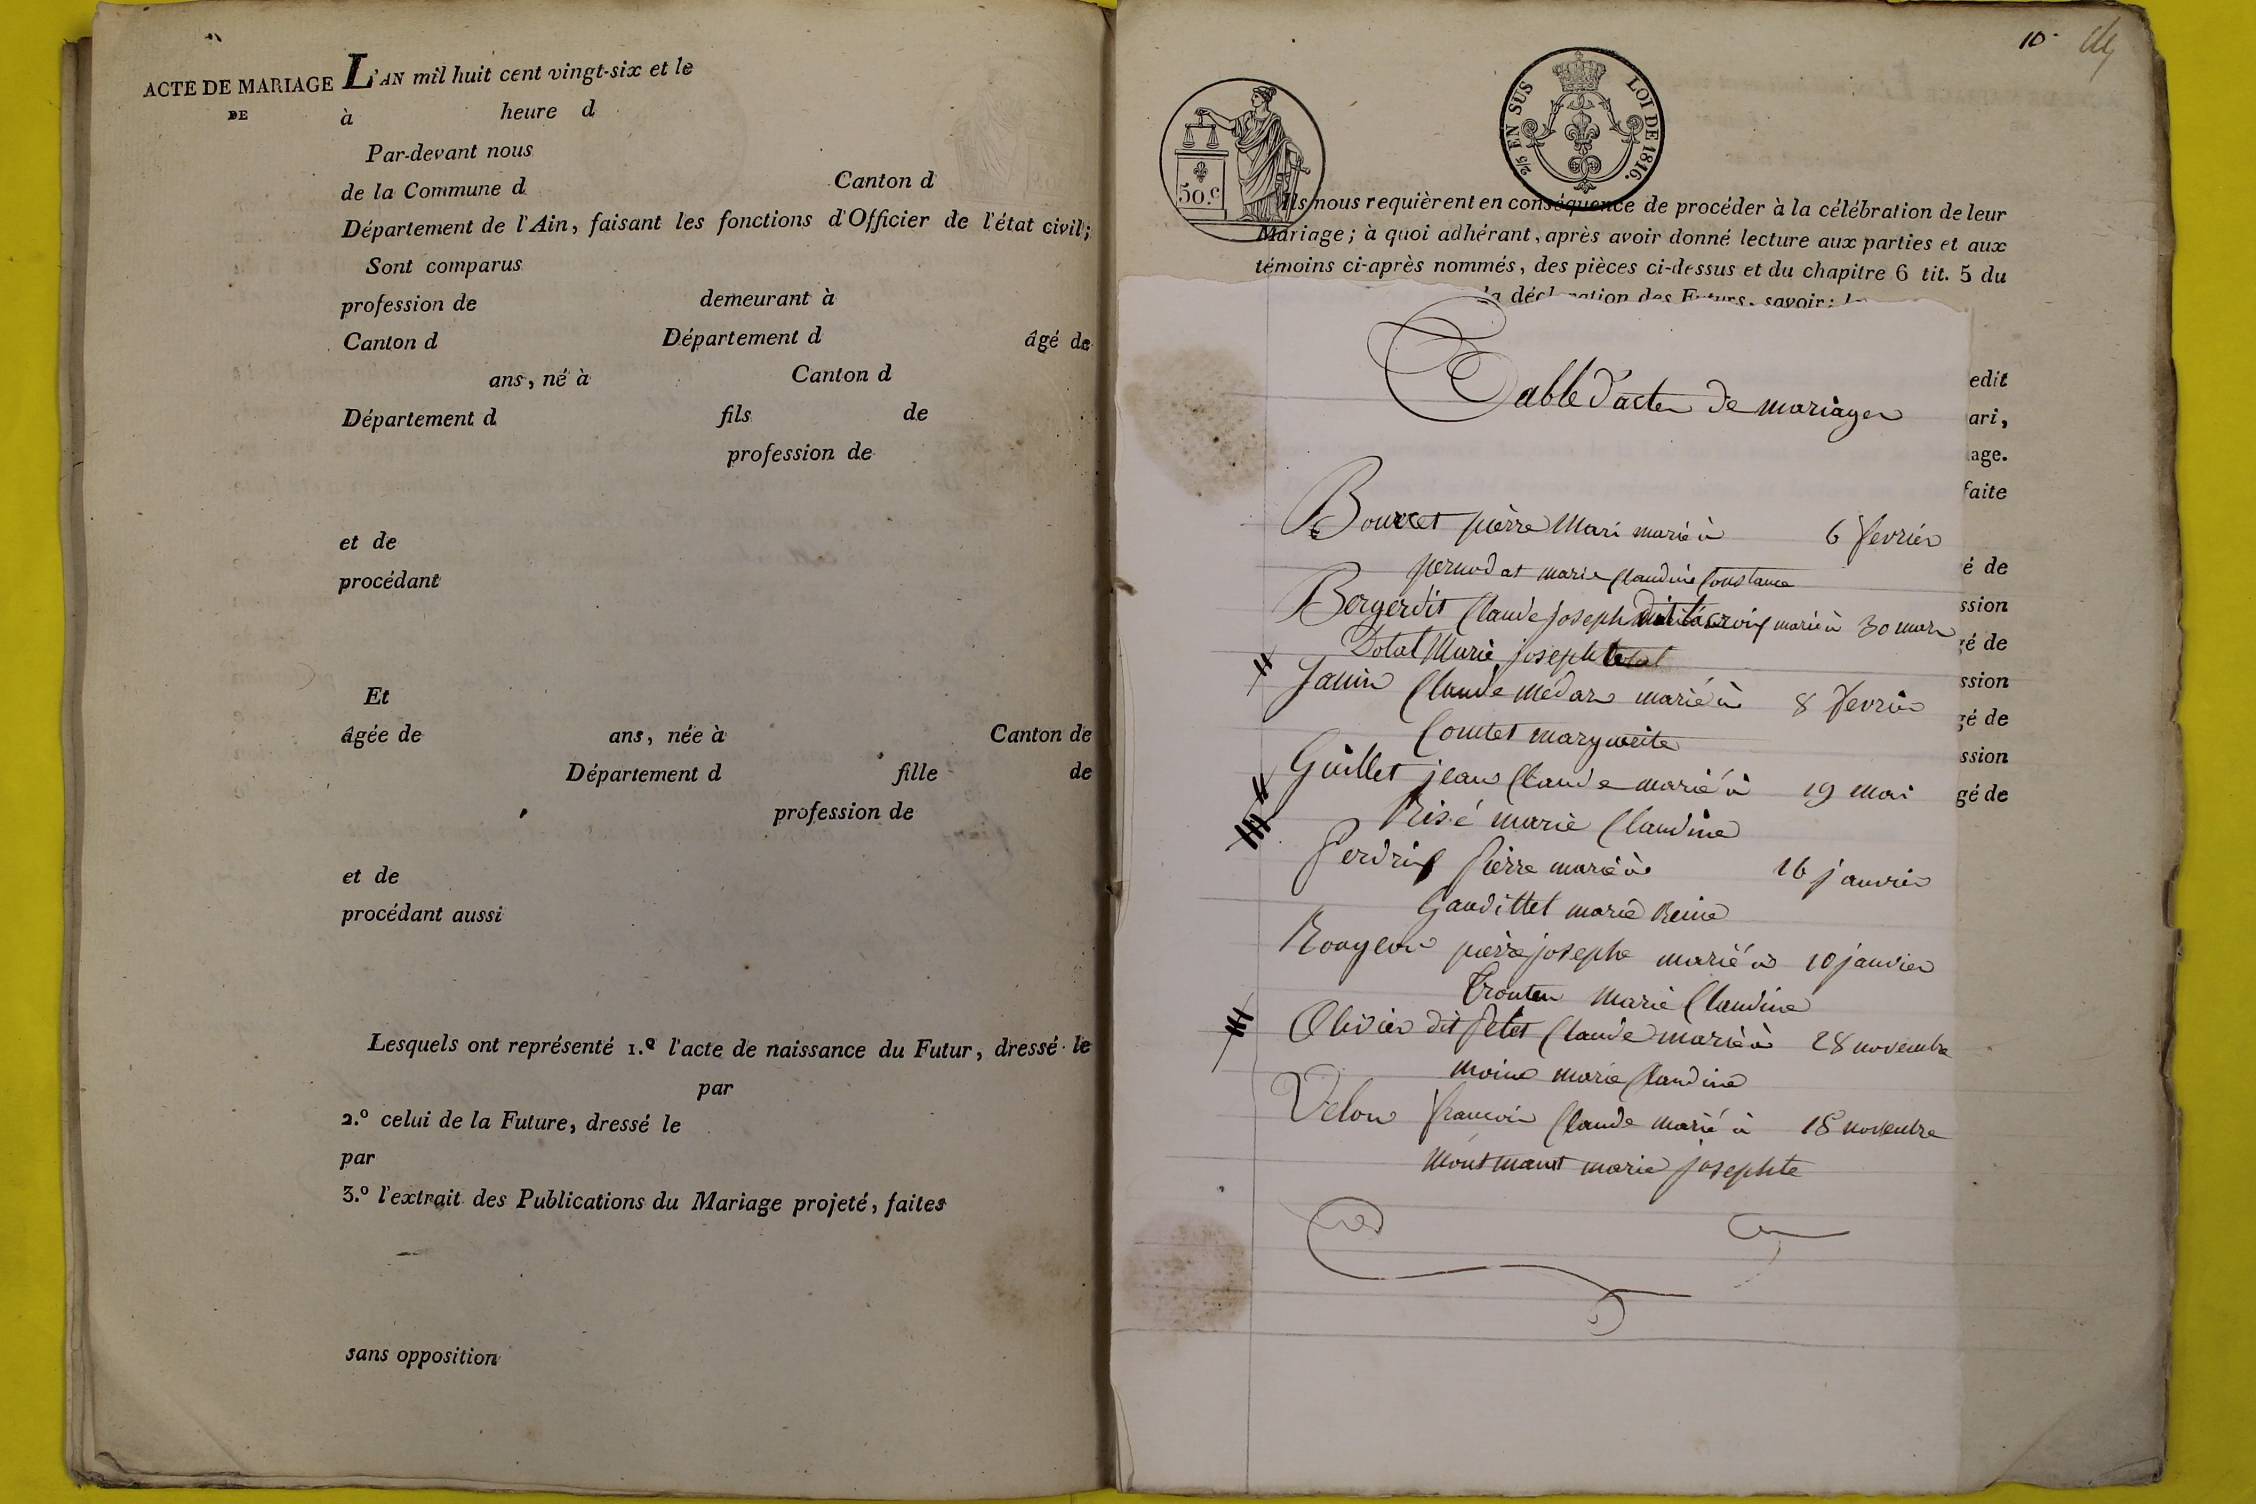 ACTE DE MARIAGE
DE
L'AN mil huit cent vingt-six et le
à heure d
Par-devant nous
de la Commune d Canton d
Département de l'Ain, faisant les fonctions d'Officier de l'état civil;
Sont comparus
profession de demeurant à
Canton d Département d âgé de
ans, né à Canton d
Département d fils de
profession de
et de
procédant
Et
âgée de ans, née à Canton de
Département d fille de
profession de
et de
procédant aussi
Lesquels ont représenté 1.º l'acte de naissance du Futur, dressé le
par
2.º celui de la Future, dressé le
par
3.º l'extrait des Publications du Mariage projeté, faites
sans opposition
10
50 c.
2/5 EN SUS LOI DE 1816.
Ils nous requièrent en conséquence de procéder à la célébration de leur
Mariage; à quoi adhérant, après avoir donné lecture aux parties et aux
témoins ci-après nommés, des pièces ci-dessus et du chapitre 6 tit. 5 du
la déclaration des Futurs, savoir:
edit
ari,
age.
faite
é de
ssion
gé de
ssion
gé de
ssion
gé de
Table d'actes de mariages
Bourcet pierre Mari marié à 6 fevrier
pernodat marie Claudine Constance
Bergerdit Claude joseph marié à 30 mars
Dotal Marie joseph
Janin Claude médar marié à 8 fevrier
Comtet marguerite
Guillet jean Claude marié à 19 mai
Risé marie Claudine
Perdrix pierre marié à 16 janvier
Gaudillet marie Reine
Rougeon pierre josephe marié à 10 janvier
Marie Claudine
Olivier dit petit Claude marié à 28 novembre
moine marie Claudine
Velon françois Claude marié à 18 novembre
marie josephte